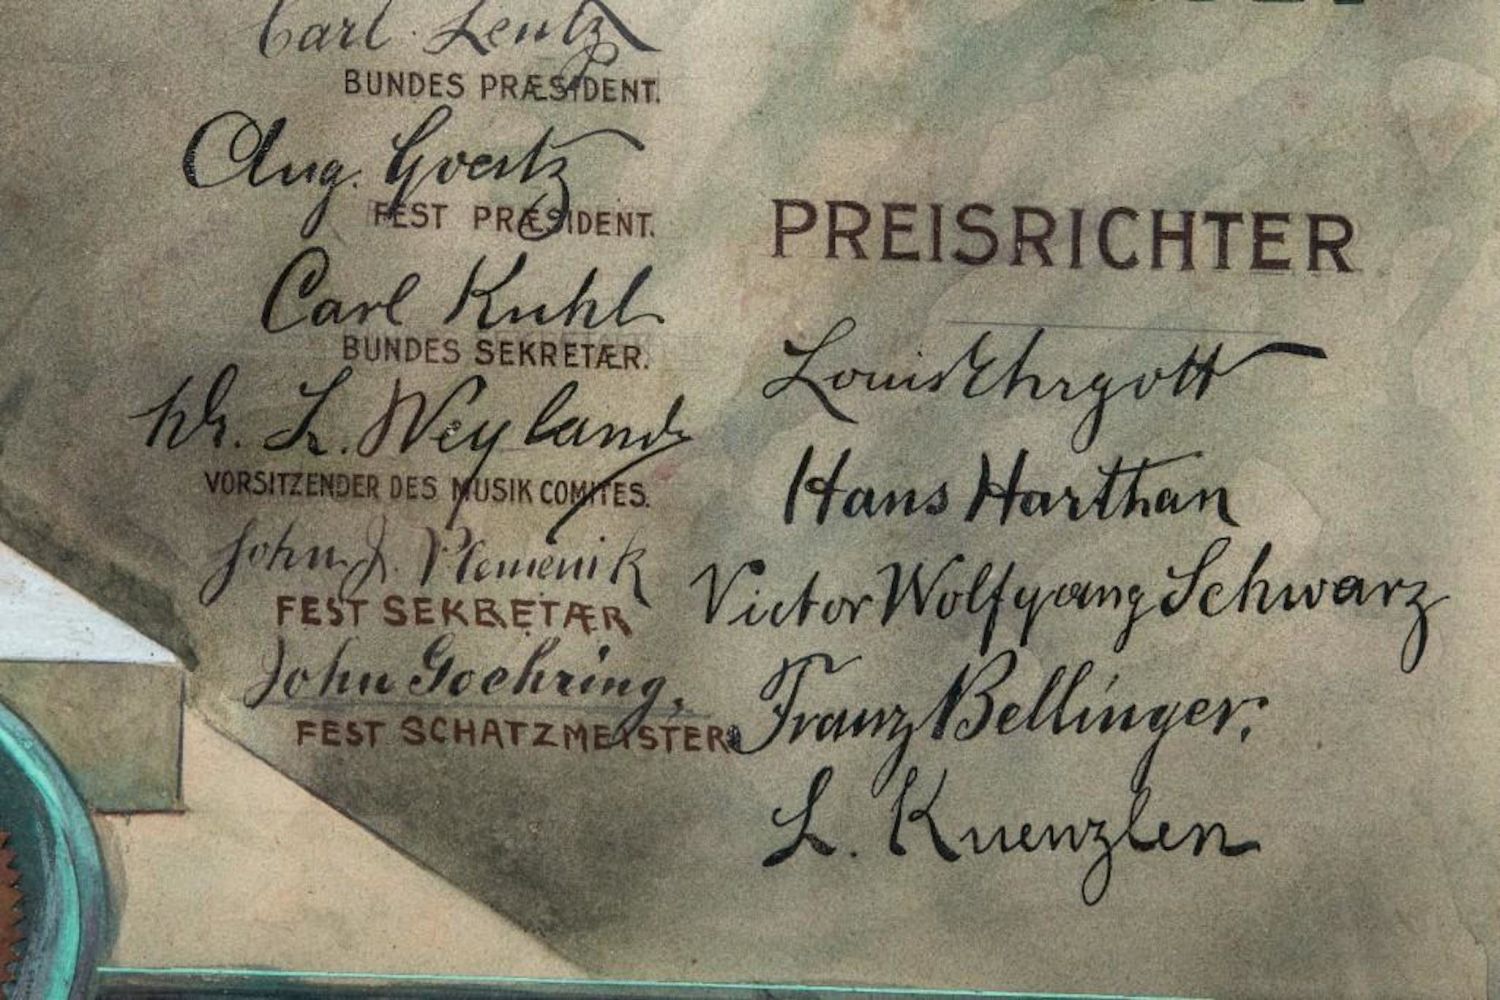 Carl Lentz
BUNDES PRÆSIDENT.
Aug. Goertz
FEST PRÆSIDENT.
Carl Kuhl
BUNDES SEKRETÆR.
L. Weyland
VORSITZENDER DES MUSIK COMITES.
John J. Plemenik
FEST SEKRETÆR
John Goehring,
FEST SCHATZMEISTER
PREISRICHTER
Louis Ehrgott
Hans Harthan
Victor Wolfgang Schwarz
Franz Bellinger.
L. Kuenzlen